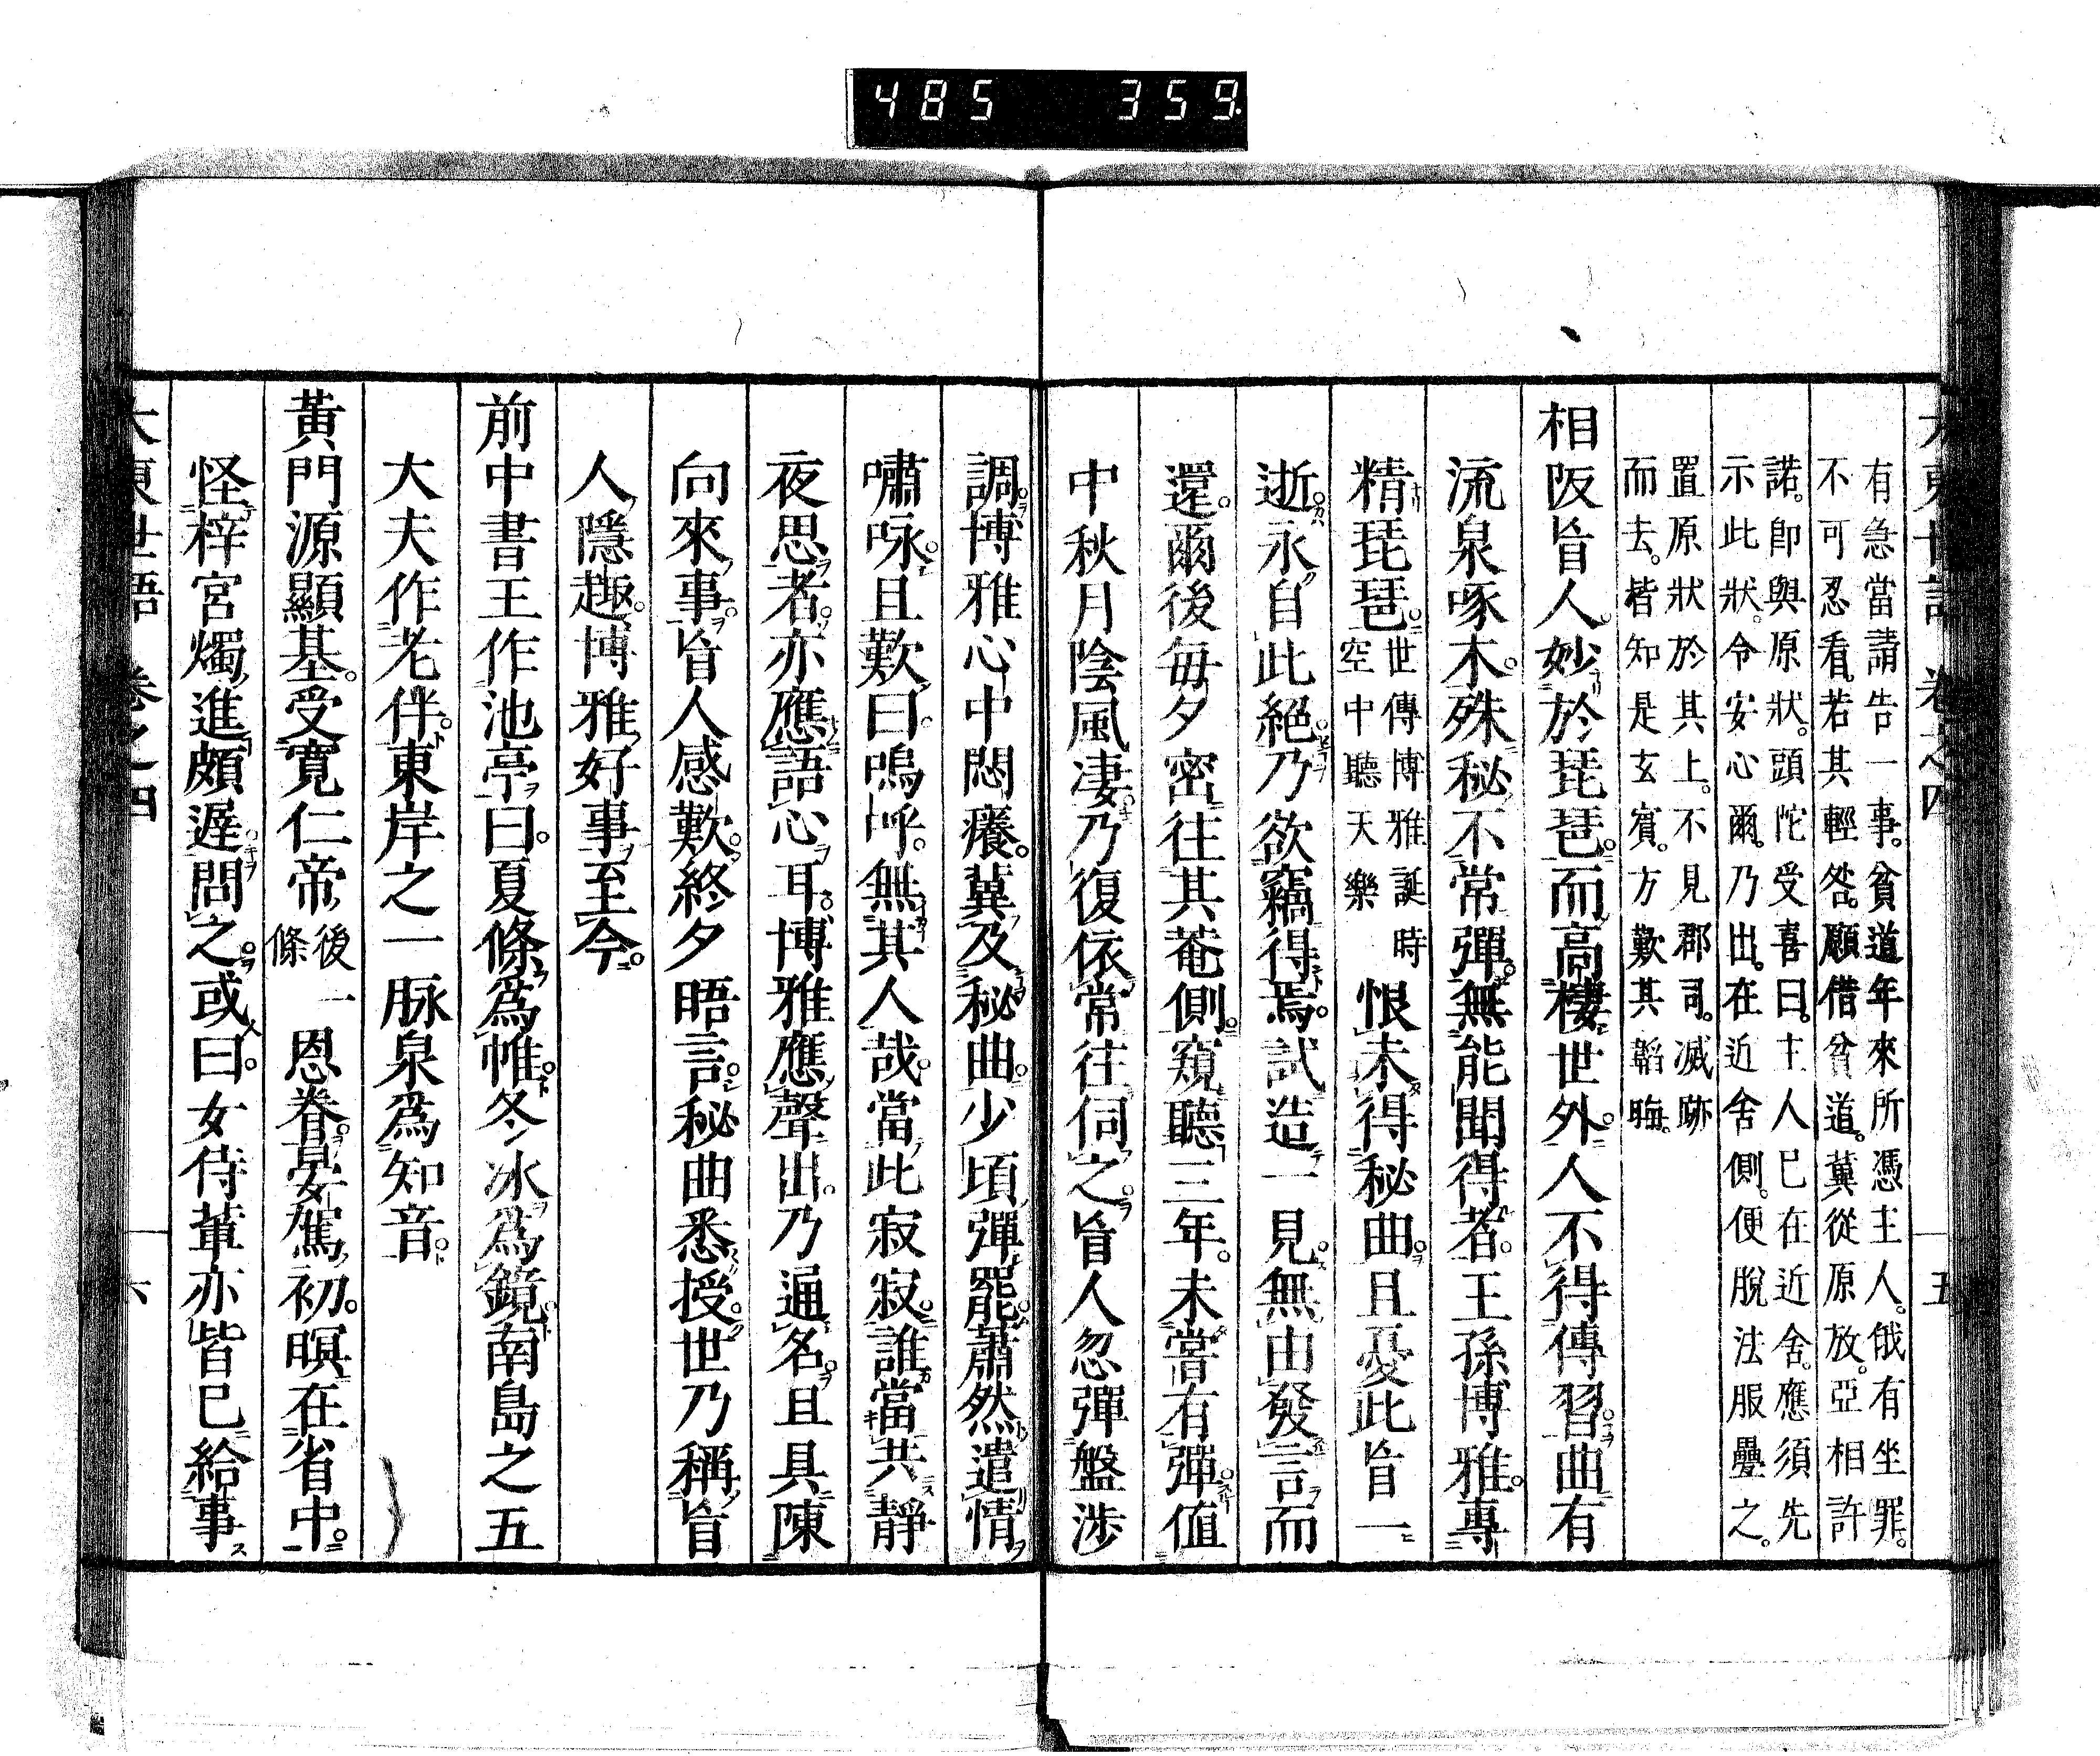 485 359
大東世語 卷之四 五
有急當請告一事。貧道年來所憑主人。俄有坐罪。
不可忍看。若其輕咎。願借貧道。冀從原放。亞相許
諾。卽與原狀。頭陀受喜曰。主人已在近舍。應須先
示此狀。令安心爾。乃出。在近舍側。便脫法服疊之。
置原狀於其上。不見郡司。滅跡
而去。皆知是玄賓。方歎其韜晦。
相阪盲人。妙於琵琶。而高棲世外。人不得傳習。曲有
流泉啄木。殊秘不常彈。無能聞得者。王孫博雅。專
精琵琶。世傳博雅誕時空中聽天樂恨未得秘曲。且憂此盲一
逝。永自此絕。乃欲竊得焉。試造一見。無由發言而
還。爾後每夕密往其菴側。窺聽三年。未嘗有彈。値
中秋月陰風凄。乃復依常往伺之。盲人忽彈盤涉
調。博雅心中悶癢。冀及秘曲。少頃彈罷。蕭然遣情
嘯咏。且歎曰。嗚呼。無其人哉。當此寂寂。誰當共靜
夜思者。亦應語心耳。博雅應聲出。乃通名。且具陳
向來事。盲人感歎。終夕晤言。秘曲悉授。世乃稱盲
人隱趣。博雅好事。至今。
前中書王作池亭曰。夏條爲帷。冬氷爲鏡。南島之五
大夫作老伴。東岸之一脉泉爲知音。
黃門源顯基。受寬仁帝後一條恩眷。晏駕初。暝在省中。
怪梓宮燭進頗遲。問之。或曰。女侍輩亦皆已給事
大東世語 卷之四 六